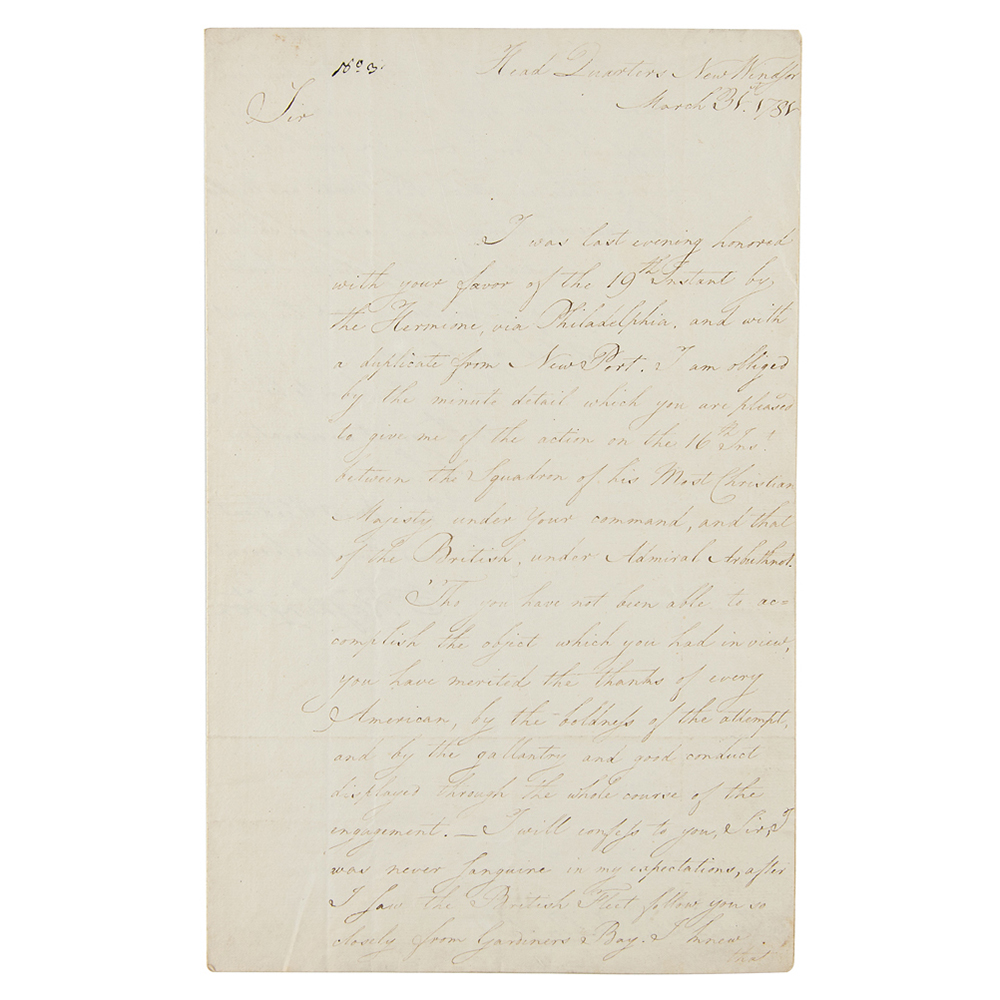 No 3.
Head Quarters New Windsor
March 31st. 1781
Sir
I was last evening honored
with your favor of the 19th Instant by
the Hermione, via Philadelphia, and with
a duplicate from New Port. I am obliged
by the minute detail which you are pleased
to give me of the action on the 16th Inst.
between the Squadron of his Most Christian
Majesty under your command, and that
of the British, under Admiral Arbuthnot.
'Tho you have not been able to ac=
complish the object which you had in view,
you have merited the thanks of every
American, by the boldness of the attempt,
and by the gallantry and good conduct
displayed through the whole course of the
engagement. — I will confess to you, Sir, I
was never sanguine in my expectations, after
I saw the British Fleet follow you so
closely from Gardiners Bay. I knew
that